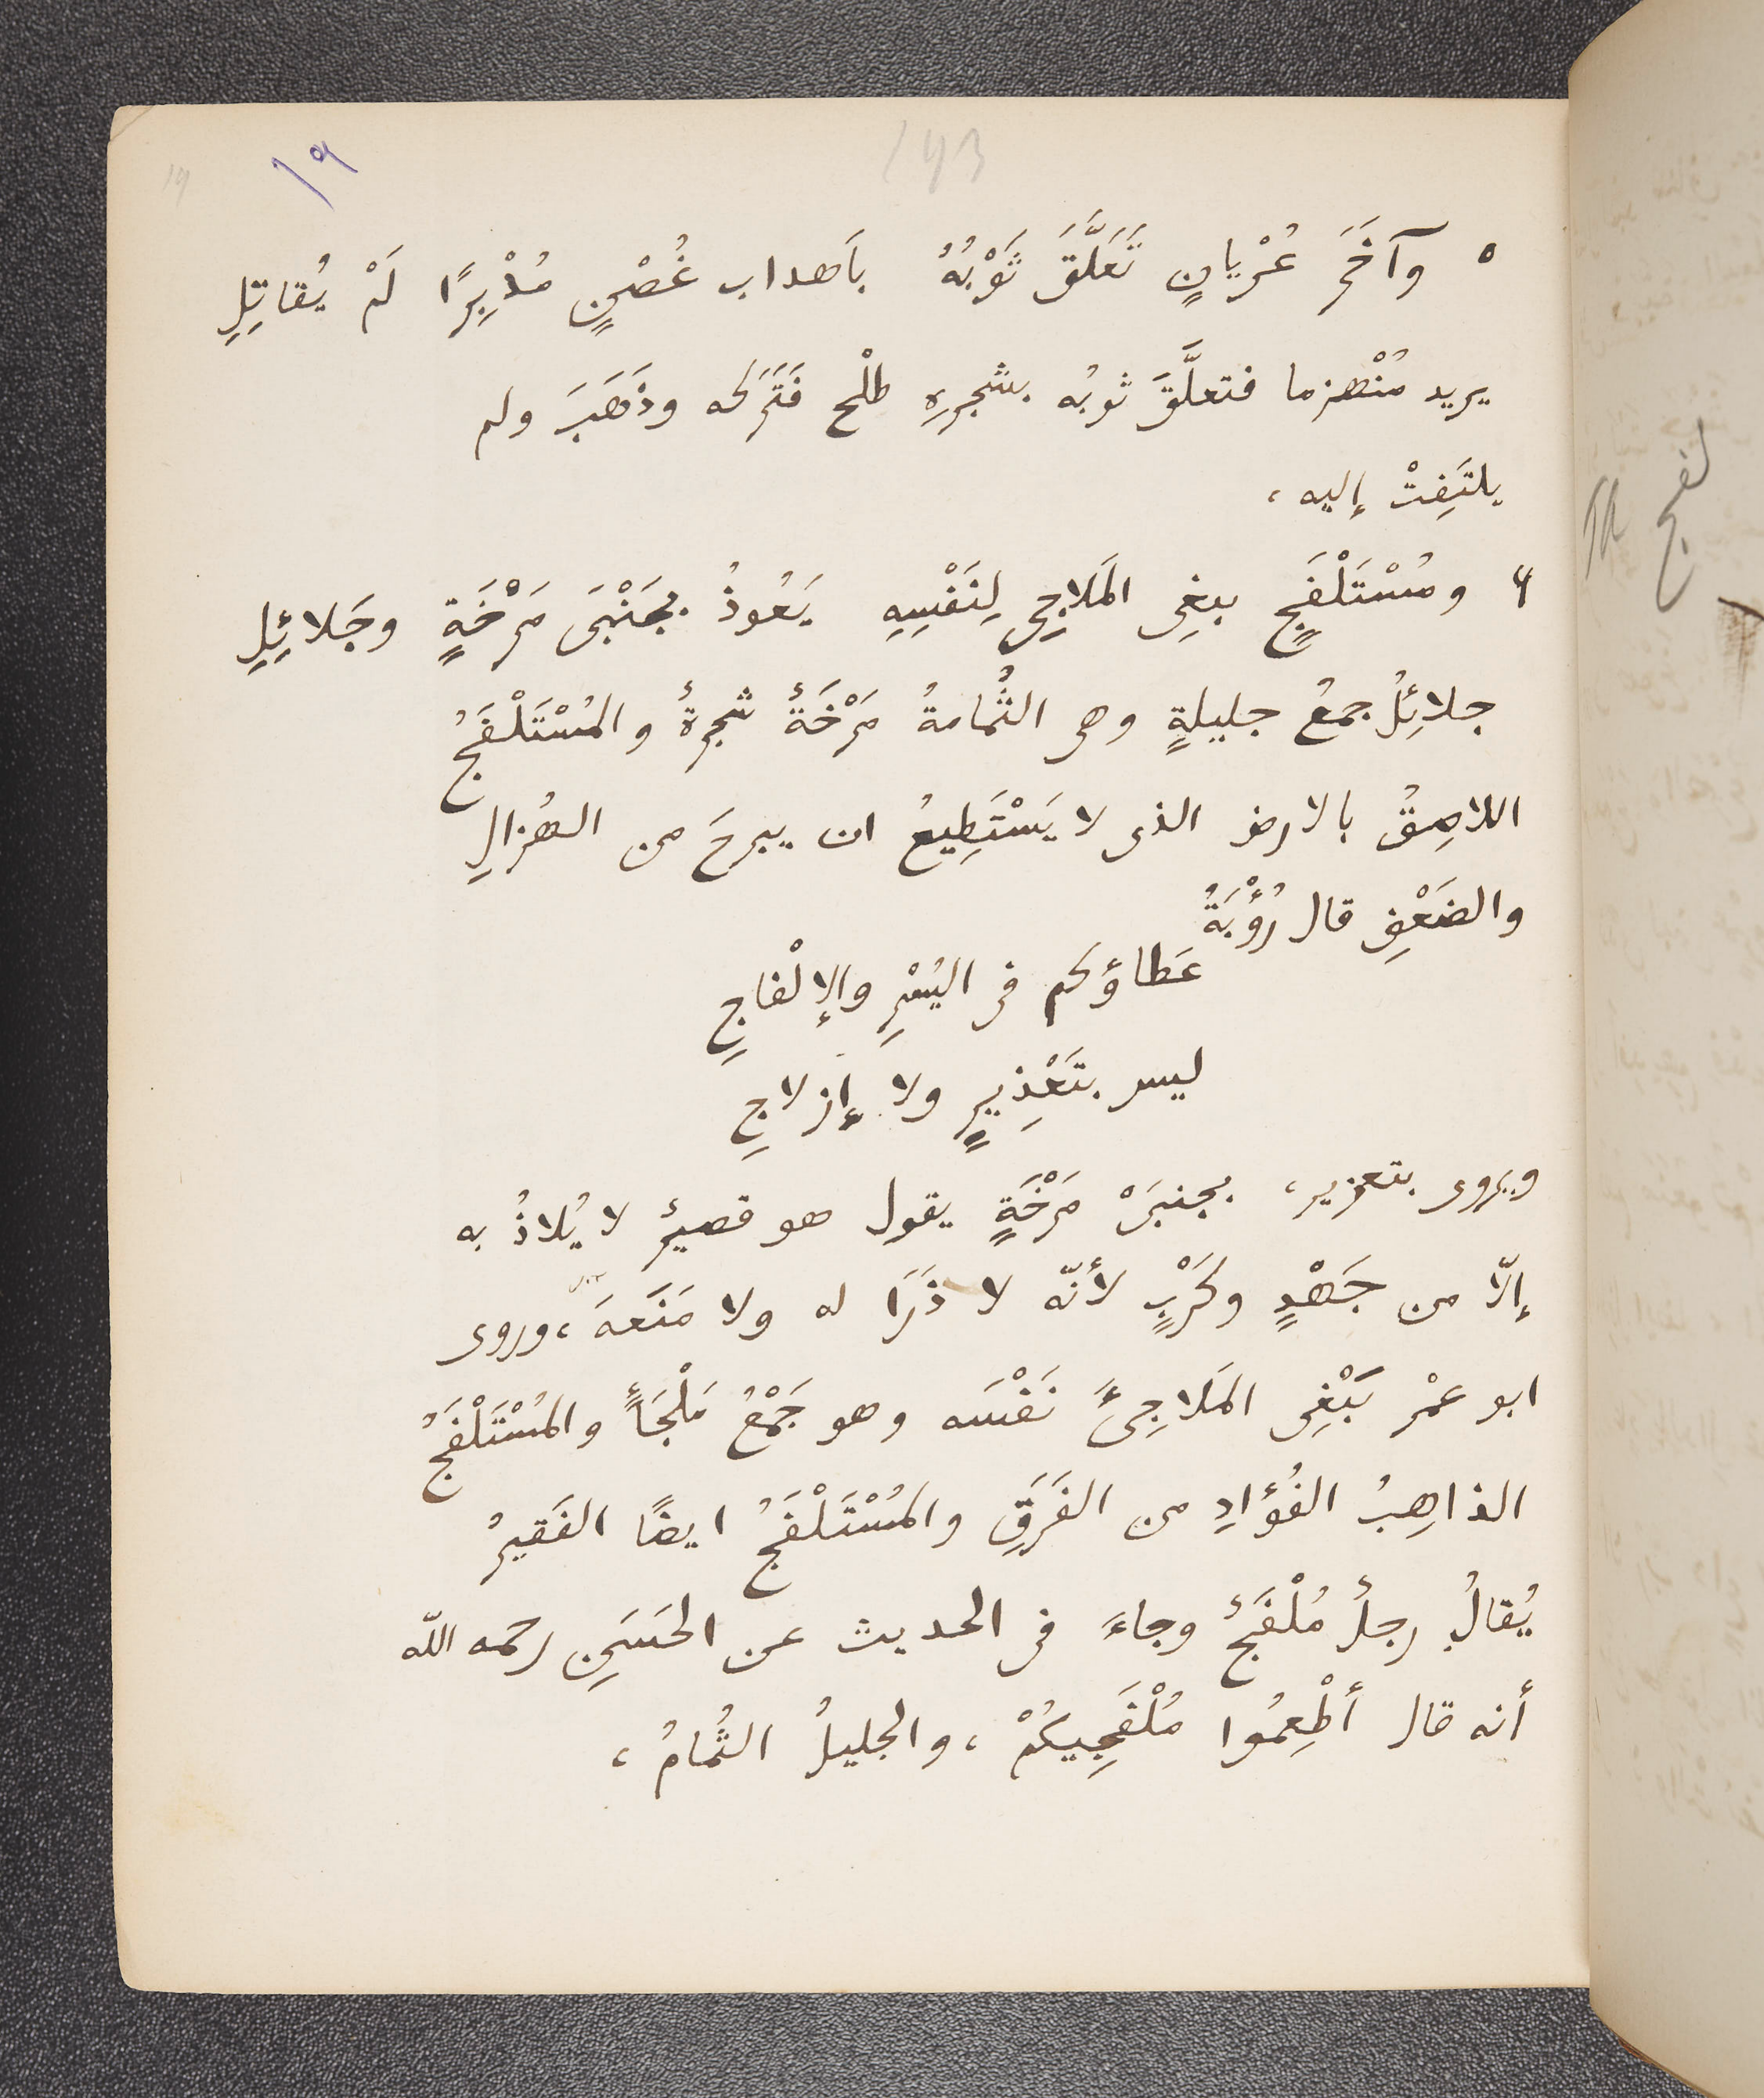 ١٩
١٩٣
٥ وآخَرَ عُرْيانٍ تَعَلَّقَ ثَوْبُهُ بأَهداب غُصْنٍ مُدْبِرًا لَمْ يُقاتِلِ
يريد مُنْهزما فتعلَّقَ ثوبُه بشجرهِ طلْح فَتَرَكه وذَهَبَ ولم
يلتَفِتْ إليه ،
٦ ومُسْتَلْفَجٍ يبغِى المَلاجِى لِنَفْسِهِ يَعُوذُ بجَنْبَى مَرْخَةٍ وجَلائِلِ
جلائِلُ جمعُ جليلةٍ وهى الثُمامةُ مَرْخَةٌ شجرةٌ والمُسْتَلْفَجُ
اللاصِقُ بالارض الذى لا يَسْتَطِيعُ ان يبرحَ من الهُزالِ
والضَعْفِ قال رُؤْبَةُ
عَطاؤكم فى اليُسْرِ والإلْفاجِ
ليس بتَعْذِيرٍ ولا إزلاجِ
ويروى بتعزير ، بجنبَىْ مَرْخَةٍ يقول هو قصيرٌ لا يُلاذُ به
إلّا من جَهْدٍ وكَرْبٍ لأنّه لا ذَرَا له ولا مَنَعَةَ ، وروى
ابو عمْرٍ يَبْغِى المَلاجِئَ نَفْسَه وهو جَمْعُ مَلْجَأٍ والمُسْتَلْفَجُ
الذاهِبُ الفُؤادِ من الفَرَقِ والمُسْتَلْفَجُ ايضًا الفَقيرُ
يُقالُ رجلٌ مُلْفَجٌ وجاءَ فى الحديث عن الحَسَنِ رحمه اللّه
أنه قال أطْعِمُوا مُلْفَجِيكُمْ ، والجليلُ الثُمامُ ،
لفج